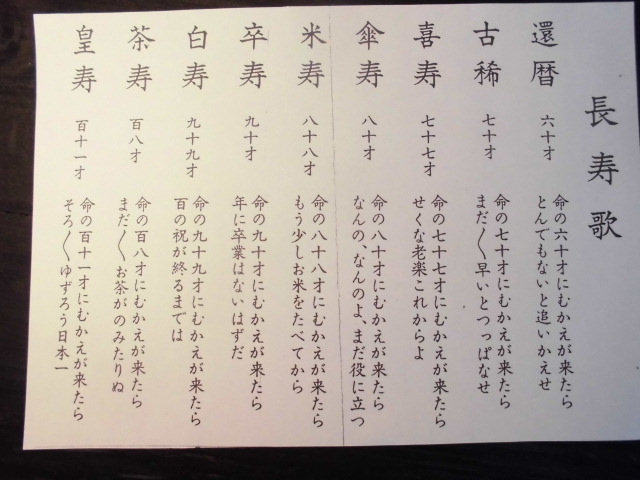 長寿歌
還暦 六十才 命の六十才にむかえが来たら
とんでもないと追いかえせ
古稀 七十才 命の七十才にむかえが来たら
まだ〳〵早いとつっぱなせ
喜寿 七十七才 命の七十七才にむかえが来たら
せくな老楽これからよ
傘寿 八十才 命の八十才にむかえが来たら
なんの、なんのよ、まだ役に立つ
米寿 八十八才 命の八十八才にむかえが来たら
もう少しお米をたべてから
卒寿 九十才 命の九十才にむかえが来たら
年に卒業はないはずだ
白寿 九十九才 命の九十九才にむかえが来たら
百の祝が終るまでは
茶寿 百八才 命の百八才にむかえが来たら
まだ〳〵お茶がのみたりぬ
皇寿 百十一才 命の百十一才にむかえが来たら
そろ〳〵ゆずろう日本一